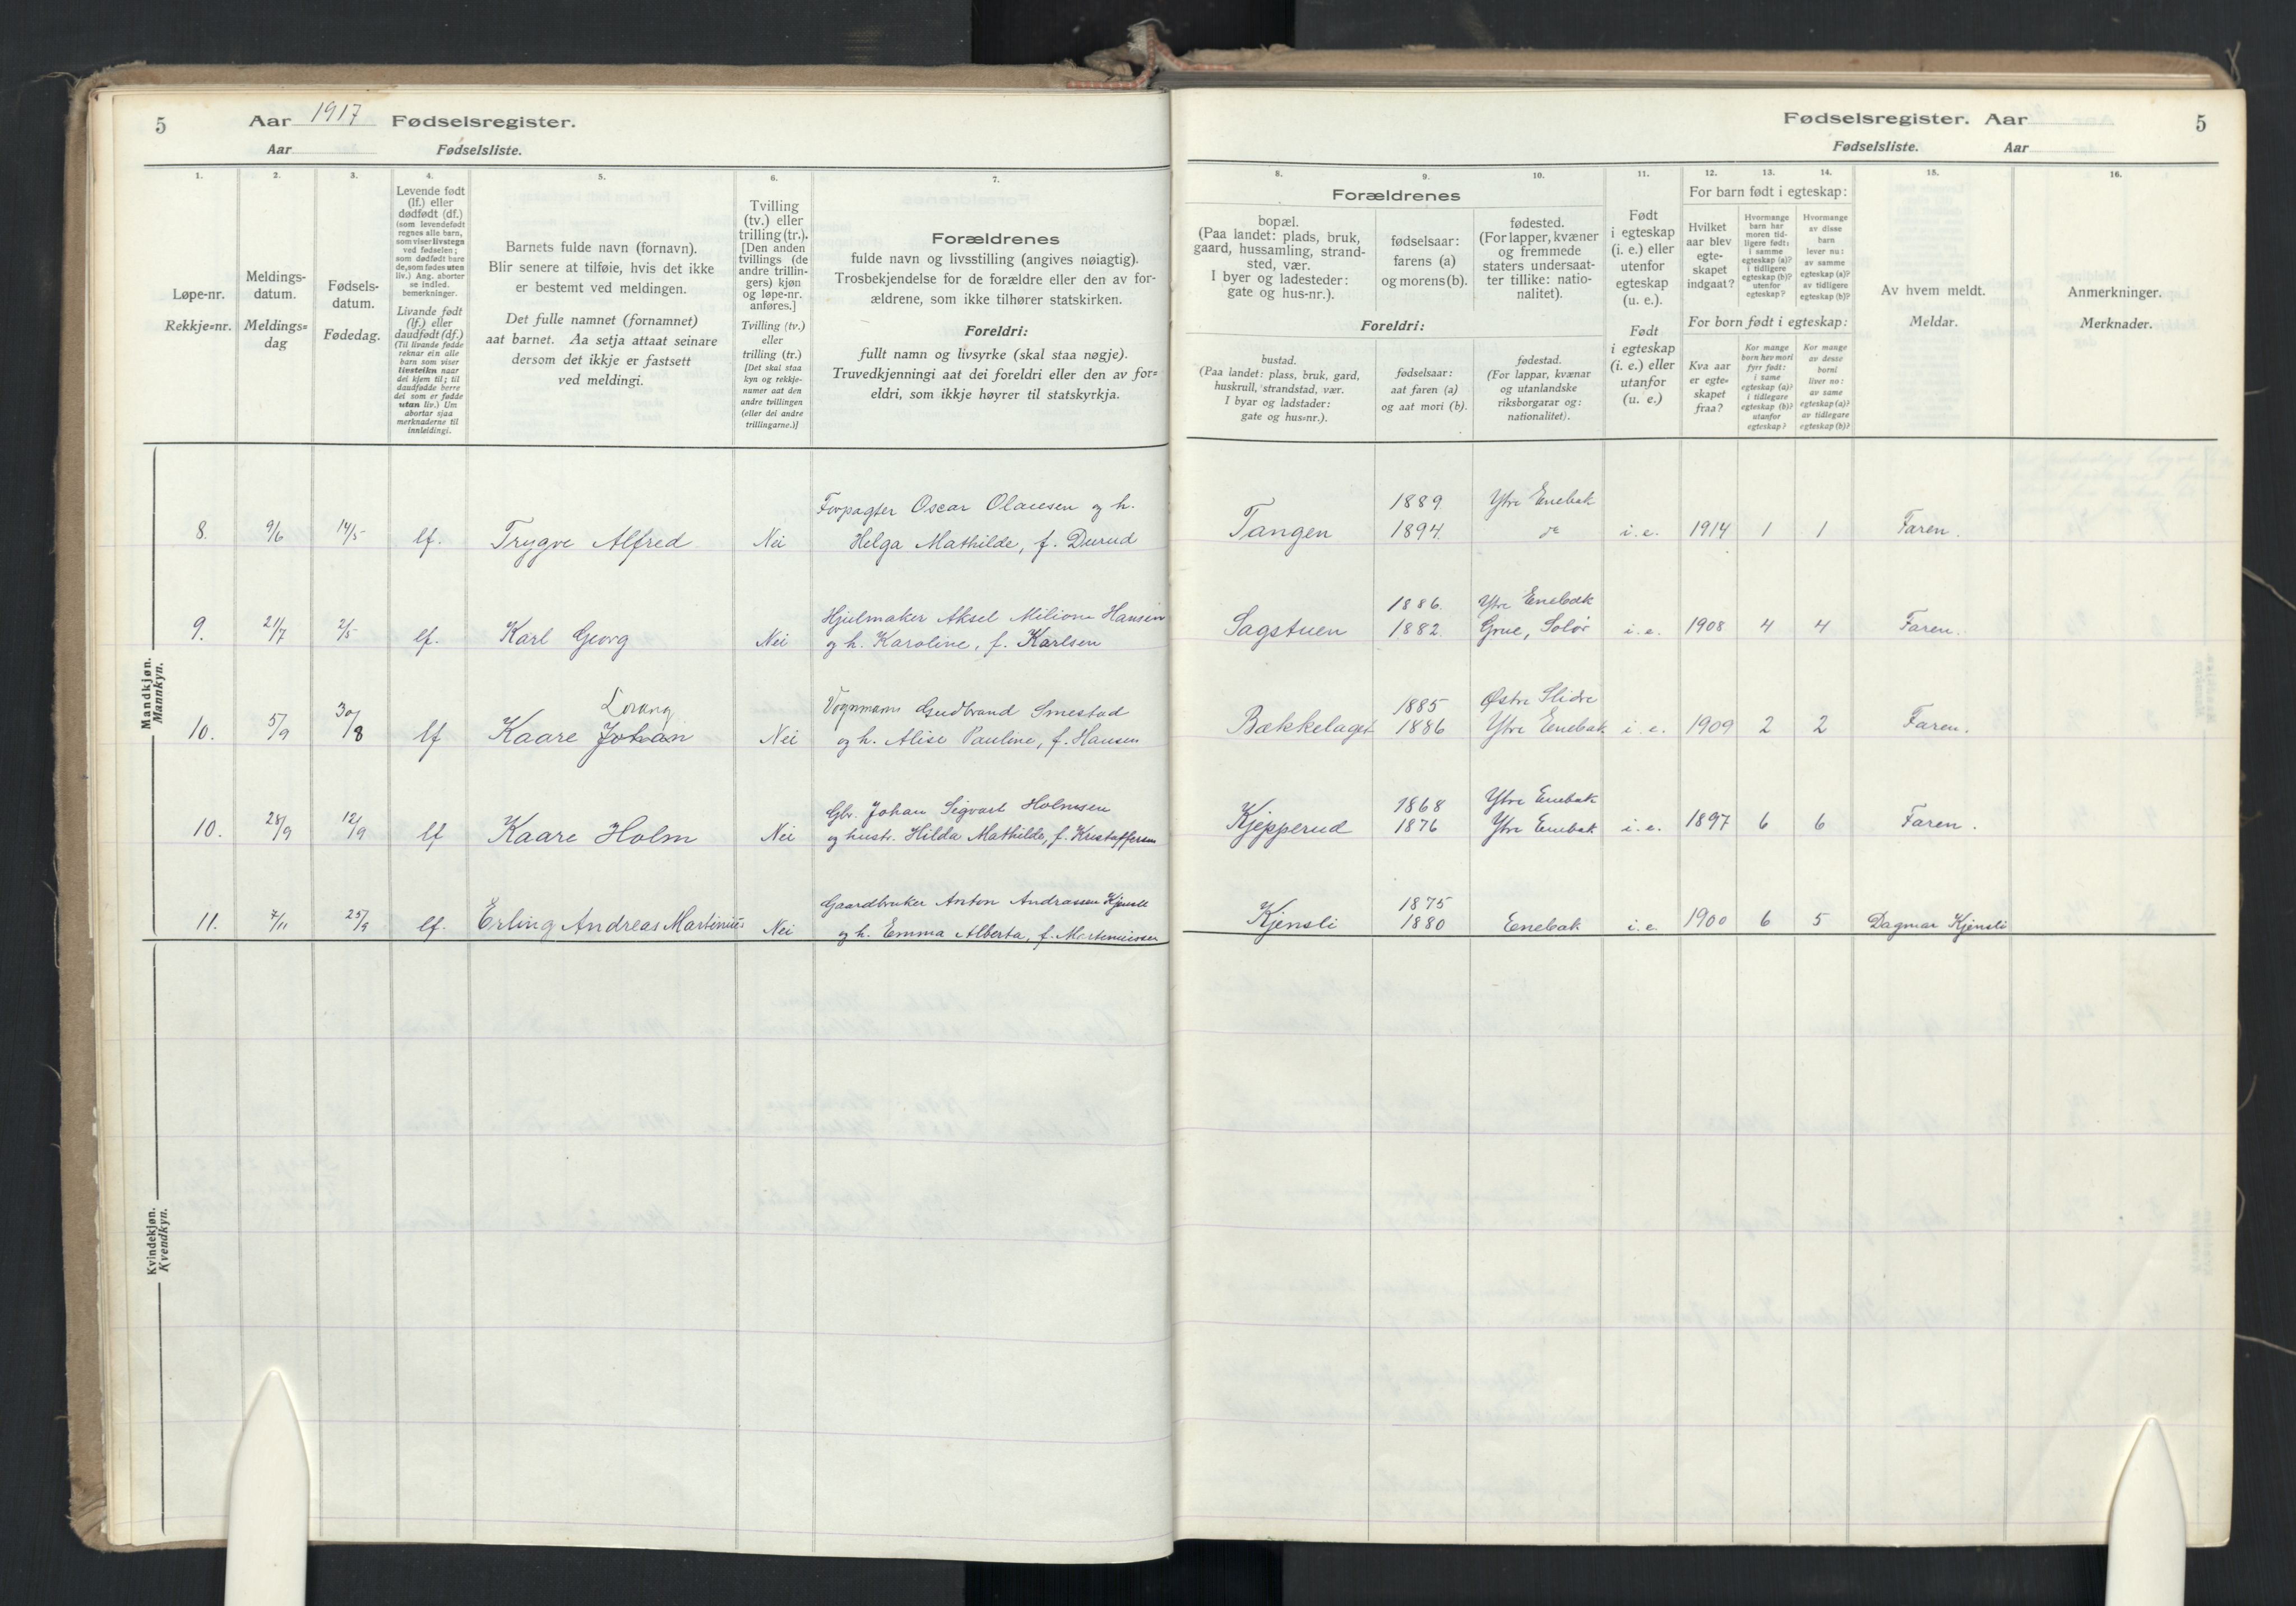 5
Aar 1917 Fødselsregister.
Aar Fødselsliste.
1.
2.
3.
4.
5.
6.
7.
Løpe-nr.
Rekkje=nr.
Meldings-
datum.
Meldings=
dag
Fødsels-
datum.
Fødedag.
Levende født
(lf.) eller
dødfødt (df.)
(som levendefødt
regnes alle barn,
som viser livstegn
ved fødselen;
som dødfødt bare
de, som fødes uten
liv.) Ang. aborter
se indled.
bemerkninger.
Livande født
(lf.) eller
daudfødt (df.)
(Til livande fødde
reknar ein alle
barn som viser
livsteikn naar
dei kjem til; til
daudfødde berre
dei som er fødde
utan liv.) Um
abortar sjaa
merknaderne til
innleidingi.
Barnets fulde navn (fornavn).
Blir senere at tilføie, hvis det ikke
er bestemt ved meldingen.
Det fulle namnet (fornamnet)
aat barnet. Aa setja attaat seinare
dersom det ikkje er fastsett
ved meldingi.
Tvilling
(tv.) eller
trilling (tr.).
[Den anden
tvillings (de
andre trillin-
gers) kjøn
og løpe-nr.
anføres.]
Tvilling (tv.)
eller
trilling (tr.)
[Det skal staa
kyn og rekkje-
numer aat den
andre tvillingen
(eller dei andre
trillingarne.)]
Forældrenes
fulde navn og livsstilling (angives nøiagtig).
Trosbekjendelse for de forældre eller den av for-
ældrene, som ikke tilhører statskirken.
Foreldri:
fullt namn og livsyrke (skal staa nøgje).
Truvedkjenningi aat dei foreldri eller den av for=
eldri, som ikkje høyrer til statskyrkja.
Mandkjøn.
Mannkyn.
8. 9/6 14/5 lf. Trygve Alfred Nei Forpagter Oscar Olausen og h.
Helga Mathilde, f. Durud
9. 21/7 2/5 lf. Karl Georg Nei Hjulmaker Aksel Milion Hansen
og h. Karoline, f. Karlsen
10. 5/9 30/8 lf Kaare Johan Lorang Nei Vognmann Gudbrand Smestad
og h. Alise Pauline, f. Hansen
10. 28/9 12/9 lf Kaare Holm Nei Gbr. Johan Sigvart Holmsen
og hustr. Hilda Mathilde, f. Kristoffersen
11. 7/11 25/9 lf. Erling Andreas Martinius Nei Gaardbruker Anton Andreassen Kjensli
og h. Emma Alberta, f. Martiniussen
Kvindekjøn.
Kvendkyn.
Fødselsregister. Aar 5
Fødselsliste. Aar
8.
9.
10.
11.
12.
13.
14.
15.
16.
Forældrenes
bopæl.
(Paa landet: plads, bruk,
gaard, hussamling, strand-
sted, vær.
I byer og ladesteder:
gate og hus-nr.).
fødselsaar:
farens (a)
og morens (b).
fødested.
(For lapper, kvæner
og fremmede
staters undersaat-
ter tillike: natio-
nalitet).
Foreldri:
bustad.
(Paa landet: plass, bruk, gard,
huskrull, strandstad, vær.
I byar og ladstader:
gate og hus=nr.).
fødselsaar:
aat faren (a)
og aat mori (b).
fødestad.
(For lappar, kvænar
og utanlandske
riksborgarar og:
nationalitet).
Født
i egteskap
(i. e.) eller
utenfor
egteskap
(u. e.).
Født
i egteskap
(i. e.) eller
utanfor
(u. e.)
For barn født i egteskap:
Hvilket
aar blev
egte-
skapet
indgaat?
Hvormange
barn har
moren tid-
ligere født:
i samme
egteskap (a)?
i tidligere
egteskap (b)?
utenfor
egteskap?
Hvormange
av disse
barn
lever nu:
av samme
egteskap (a)?
av tidligere
egteskap (b)?
For born født i egteskap:
Kva aar
er egte=
skapet
fraa?
Kor mange
born hev mori
fyrr født:
i same
egteskap (a)?
i tidlegare
egteskap (b)?
utanfor
egteskap?
Kor mange
av desse
borni
liver no:
av same
egteskap (a)?
av tidlegare
egteskap (b)?
Av hvem meldt.
Meldar.
Anmerkninger.
Merknader.
Tangen 1889. 1894. Ytre Enebak do i. e. 1914 1 1 Faren.
Sagstuen 1886. 1882. Ytre Enebak Grue, Solør i. e. 1908 4 4 Faren.
Bækkelaget 1885 1886 Østre Slidre Ytre Enebak i. e. 1909 2 2 Faren.
Kjepperud 1868 1876 Ytre Enebak Ytre Enebak i. e. 1897 6 6 Faren.
Kjensli 1875 1880 Enebak i. e. 1900 6 5 Dagmar Kjensli